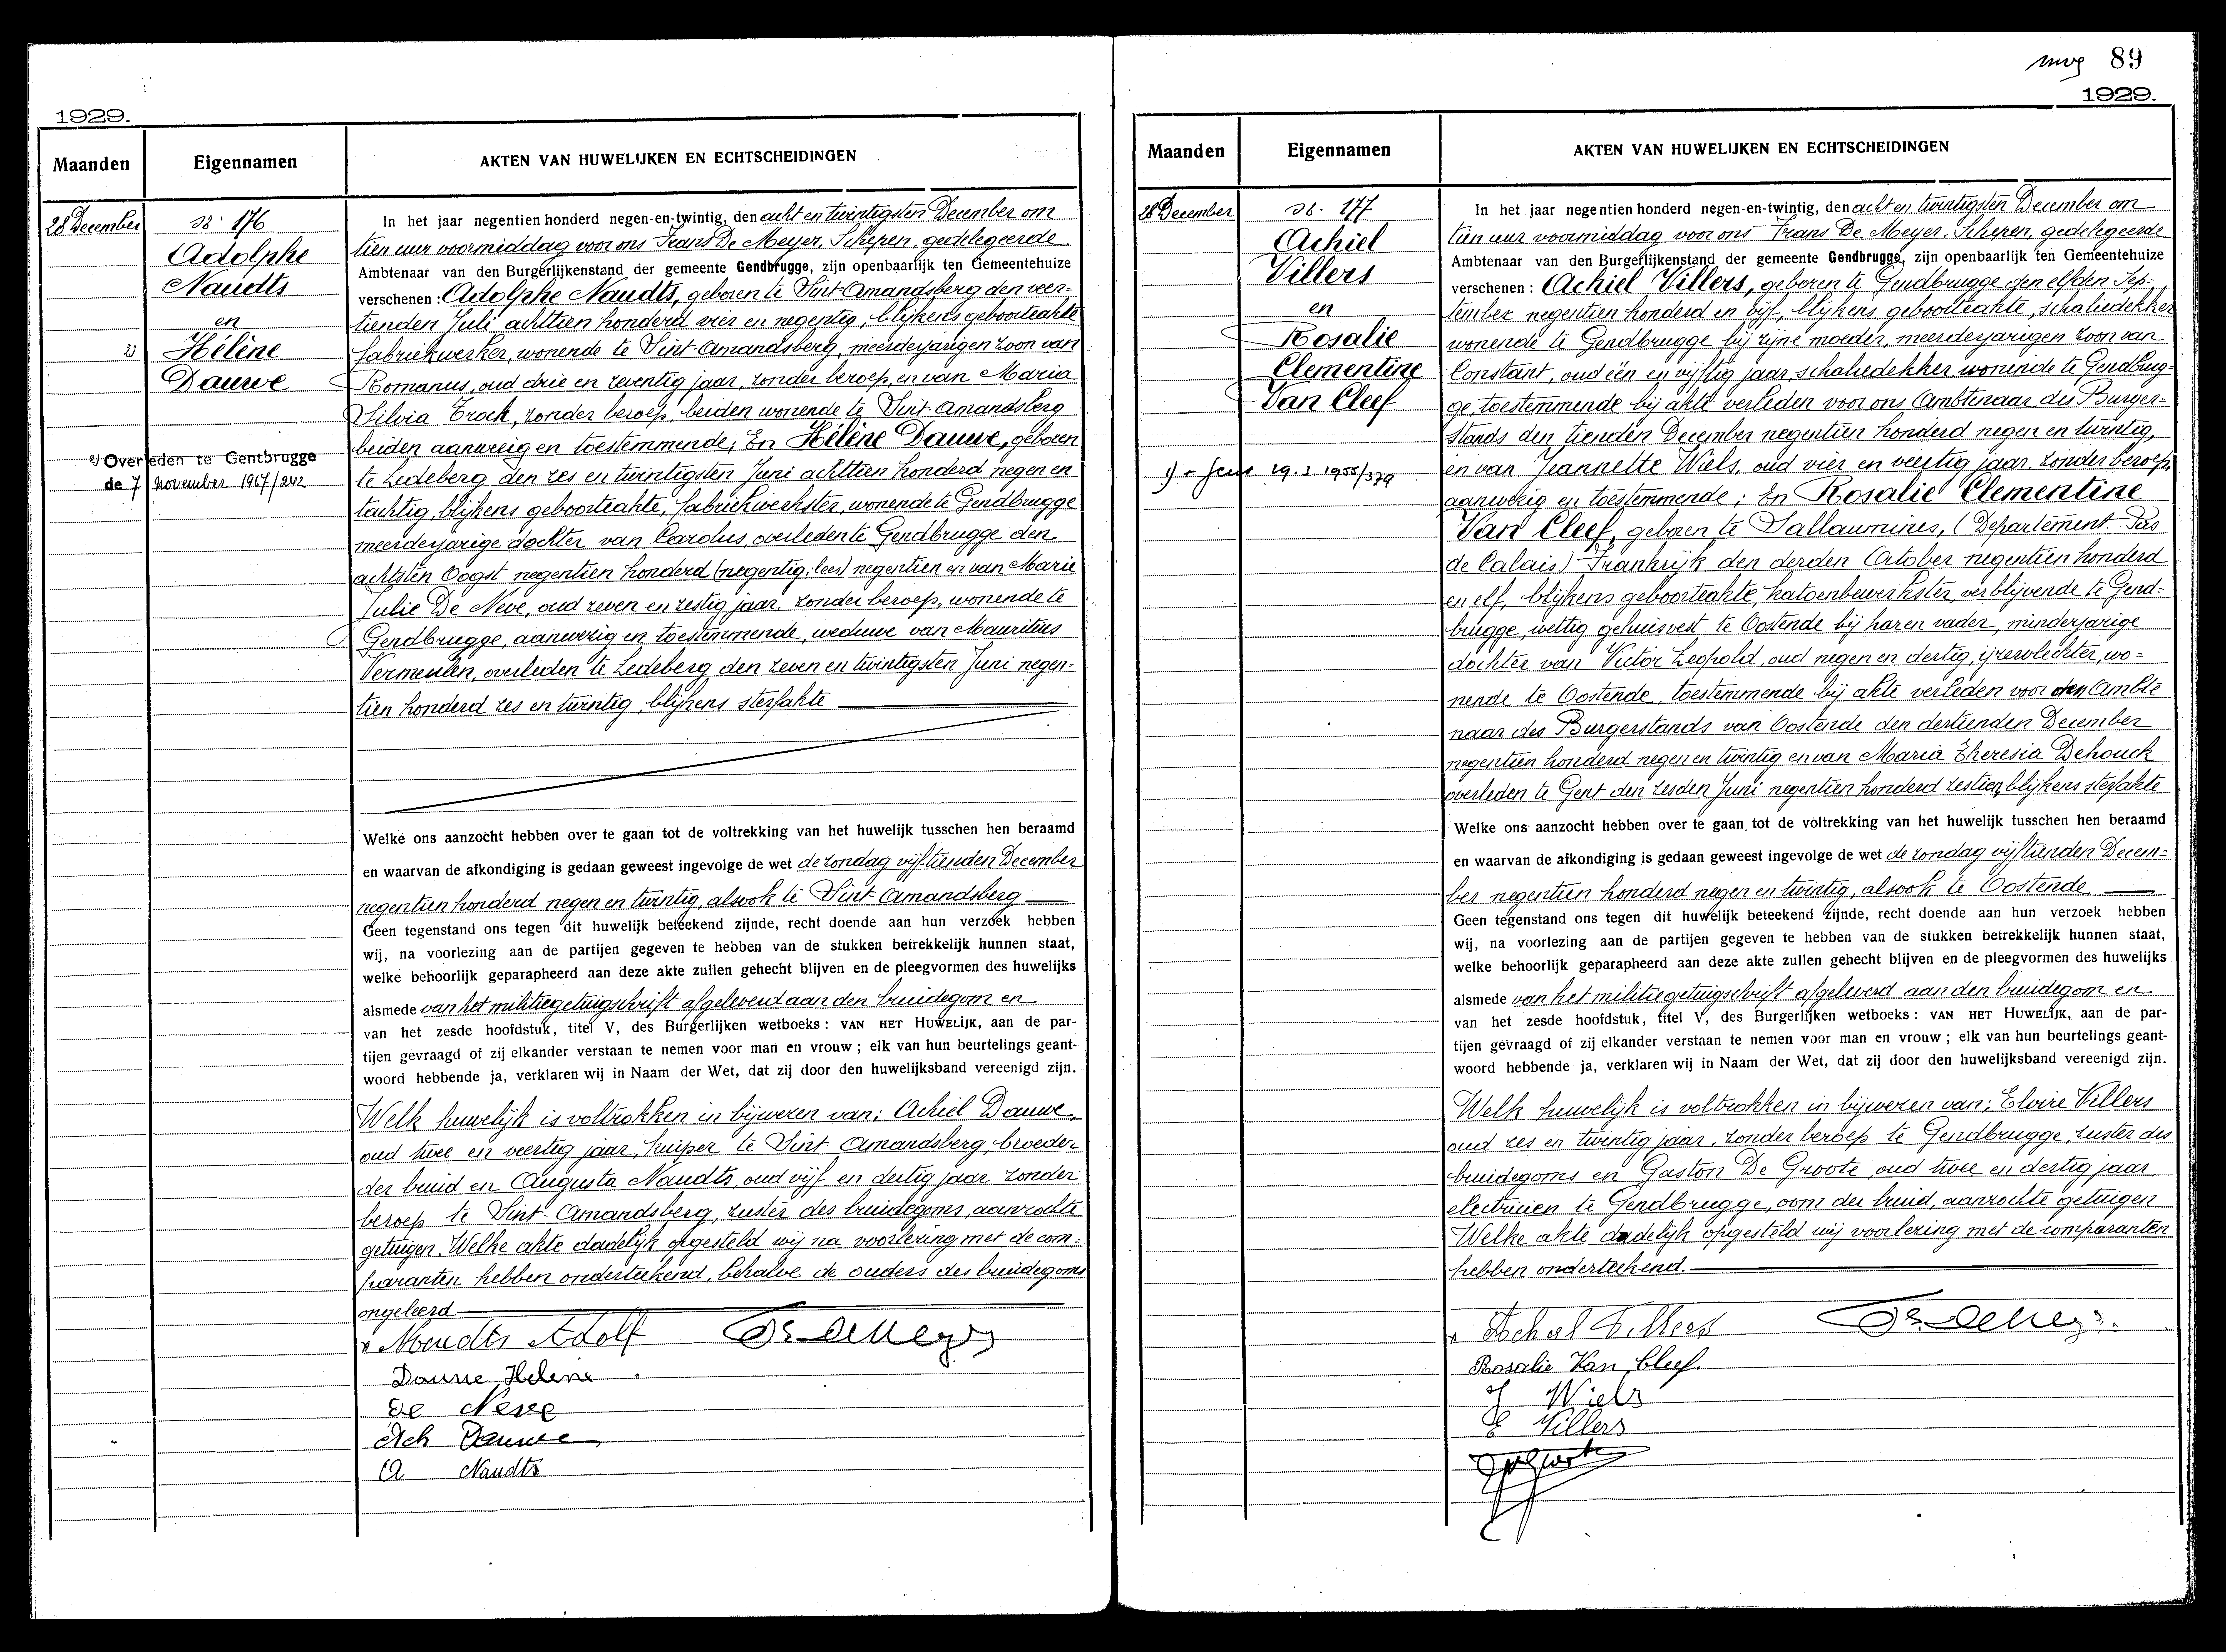 1929.
Maanden
Eigennamen
AKTEN VAN HUWELIJKEN EN ECHTSCHEIDINGEN
28 December
Nr. 176
Adolphe
Naudts
en
2) Hélène
Dauwe
2) Overleden te Gentbrugge
de 7 november 1967/242
In het jaar negentien honderd negen-en-twintig, den acht en twintigsten December om
tien uur voormiddag voor ons Frans De Meyer, Schepen, gedelegeerde
Ambtenaar van den Burgerlijkenstand der gemeente Gendbrugge, zijn openbaarlijk ten Gemeentehuize
verschenen : Adolphe Naudts, geboren te Sint-Amandsberg den veer-
tienden Juli achttien honderd vier en negentig, blijkens geboorteakte
fabriekwerker, wonende te Sint-Amandsberg, meerderjarigen zoon van
Romanus, oud drie en zeventig jaar, zonder beroep, en van Maria
Silvia Trock, zonder beroep, beiden wonende te Sint-Amandsberg
beiden aanwezig en toestemmende; En Hélène Dauwe, geboren
te Ledeberg den zes en twintigsten Juni achttien honderd negen en
tachtig, blijkens geboorteakte, fabriekwerkster, wonende te Gendbrugge
meerderjarige dochter van Carolus, overleden te Gendbrugge den
achtsten Oogst negentien honderd (negentig: lees) negentien en van Marie
Julie De Neve, oud zeven en zestig jaar, zonder beroep, wonende te
Gendbrugge, aanwezig en toestemmende, weduwe van Mauritius
Vermeulen, overleden te Ledeberg den zeven en twintigsten Juni negen-
tien honderd zes en twintig, blijkens sterfakte
Welke ons aanzocht hebben over te gaan tot de voltrekking van het huwelijk tusschen hen beraamd
en waarvan de afkondiging is gedaan geweest ingevolge de wet de zondag vijftienden December
negentien honderd negen en twintig, alsook te Sint-Amandsberg
Geen tegenstand ons tegen dit huwelijk beteekend zijnde, recht doende aan hun verzoek hebben
wij, na voorlezing aan de partijen gegeven te hebben van de stukken betrekkelijk hunnen staat,
welke behoorlijk geparapheerd aan deze akte zullen gehecht blijven en de pleegvormen des huwelijks
alsmede van het militiegetuigschrift afgeleverd aan den bruidegom en
van het zesde hoofdstuk, titel V, des Burgerlijken wetboeks : VAN HET HUWELIJK, aan de par-
tijen gevraagd of zij elkander verstaan te nemen voor man en vrouw ; elk van hun beurtelings geant-
woord hebbende ja, verklaren wij in Naam der Wet, dat zij door den huwelijksband vereenigd zijn.
Welk huwelijk is voltrokken in bijwezen van: Achiel Dauwe,
oud twee en veertig jaar, kuiper te Sint Amandsberg, broeder
der bruid en Augusta Naudts, oud vijf en dertig jaar, zonder
beroep te Sint-Amandsberg, zuster des bruidegoms, aanzochte
getuigen. Welke akte dadelijk opgesteld wij na voorlezing met de com-
paranten hebben onderteekend, behalve de ouders des bruidegoms
ongeleerd
x Noudts Adolf Fr. De Meyer
Dauwe Helene
De Neve
Ach Dauwe
A Naudts
89
1929.
Maanden
Eigennamen
AKTEN VAN HUWELIJKEN EN ECHTSCHEIDINGEN
28 December
Nr. 177
Achiel
Villers
en
Rosalie
Clementine
Van Cleef
29.3.1955/379
In het jaar negentien honderd negen-en-twintig, den acht en twintigsten December om
tien uur voormiddag voor ons Frans De Meyer, Schepen, gedelegeerde
Ambtenaar van den Burgerlijkenstand der gemeente Gendbrugge, zijn openbaarlijk ten Gemeentehuize
verschenen : Achiel Villers, geboren te Gendbrugge den elfden Sep-
tember negentien honderd en vijf, blijkens geboorteakte, schaliedekker
wonende te Gendbrugge bij zijne moeder, meerderjarigen zoon van
Constant, oud één en vijftig jaar, schaliedekker, wonende te Gendbrug-
ge, toestemmende bij akte verleden voor ons Ambtenaar des Burger-
stands den tienden December negentien honderd negen en twintig,
en van Jeannette Wiels, oud vier en veertig jaar, zonder beroep,
aanwezig en toestemmende; En Rosalie Clementine
Van Cleef, geboren te Sallaumines, (Departement Pas
de Calais) Frankrijk den derden October negentien honderd
en elf, blijkens geboorteakte, katoenbewerkster, verblijvende te Gend-
brugge, wettig gehuisvest te Oostende bij haren vader, minderjarige
dochter van Victor Leopold, oud negen en dertig, ijzervlechter, wo-
nende te Oostende, toestemmende bij akte verleden voor den Ambte
naar des Burgerstands van Oostende den dertienden December
negentien honderd negen en twintig en van Maria Theresia Dehouck
overleden te Gent den zesden Juni negentien honderd zestien, blijkens sterfakte
Welke ons aanzocht hebben over te gaan tot de voltrekking van het huwelijk tusschen hen beraamd
en waarvan de afkondiging is gedaan geweest ingevolge de wet de zondag vijftienden Decem-
ber negentien honderd negen en twintig, alsook te Oostende
Geen tegenstand ons tegen dit huwelijk beteekend zijnde, recht doende aan hun verzoek hebben
wij, na voorlezing aan de partijen gegeven te hebben van de stukken betrekkelijk hunnen staat,
welke behoorlijk geparapheerd aan deze akte zullen gehecht blijven en de pleegvormen des huwelijks
alsmede van het militiegetuigschrift afgeleverd aan den bruidegom en
van het zesde hoofdstuk, titel V, des Burgerlijken wetboeks : VAN HET HUWELIJK, aan de par-
tijen gevraagd of zij elkander verstaan te nemen voor man en vrouw ; elk van hun beurtelings geant-
woord hebbende ja, verklaren wij in Naam der Wet, dat zij door den huwelijksband vereenigd zijn.
Welk huwelijk is voltrokken in bijwezen van; Elvire Villers
oud zes en twintig jaar, zonder beroep te Gendbrugge, zuster des
bruidegoms en Gaston De Groote, oud twee en dertig jaar,
electricien te Gendbrugge, oom der bruid, aanzochte getuigen
Welke akte dadelijk opgesteld wij voorlezing met de comparanten
hebben onderteekend.
x Achiel Villers Fr. De Meyer
Rosalie Van Cleef.
J Wiels
E Villers